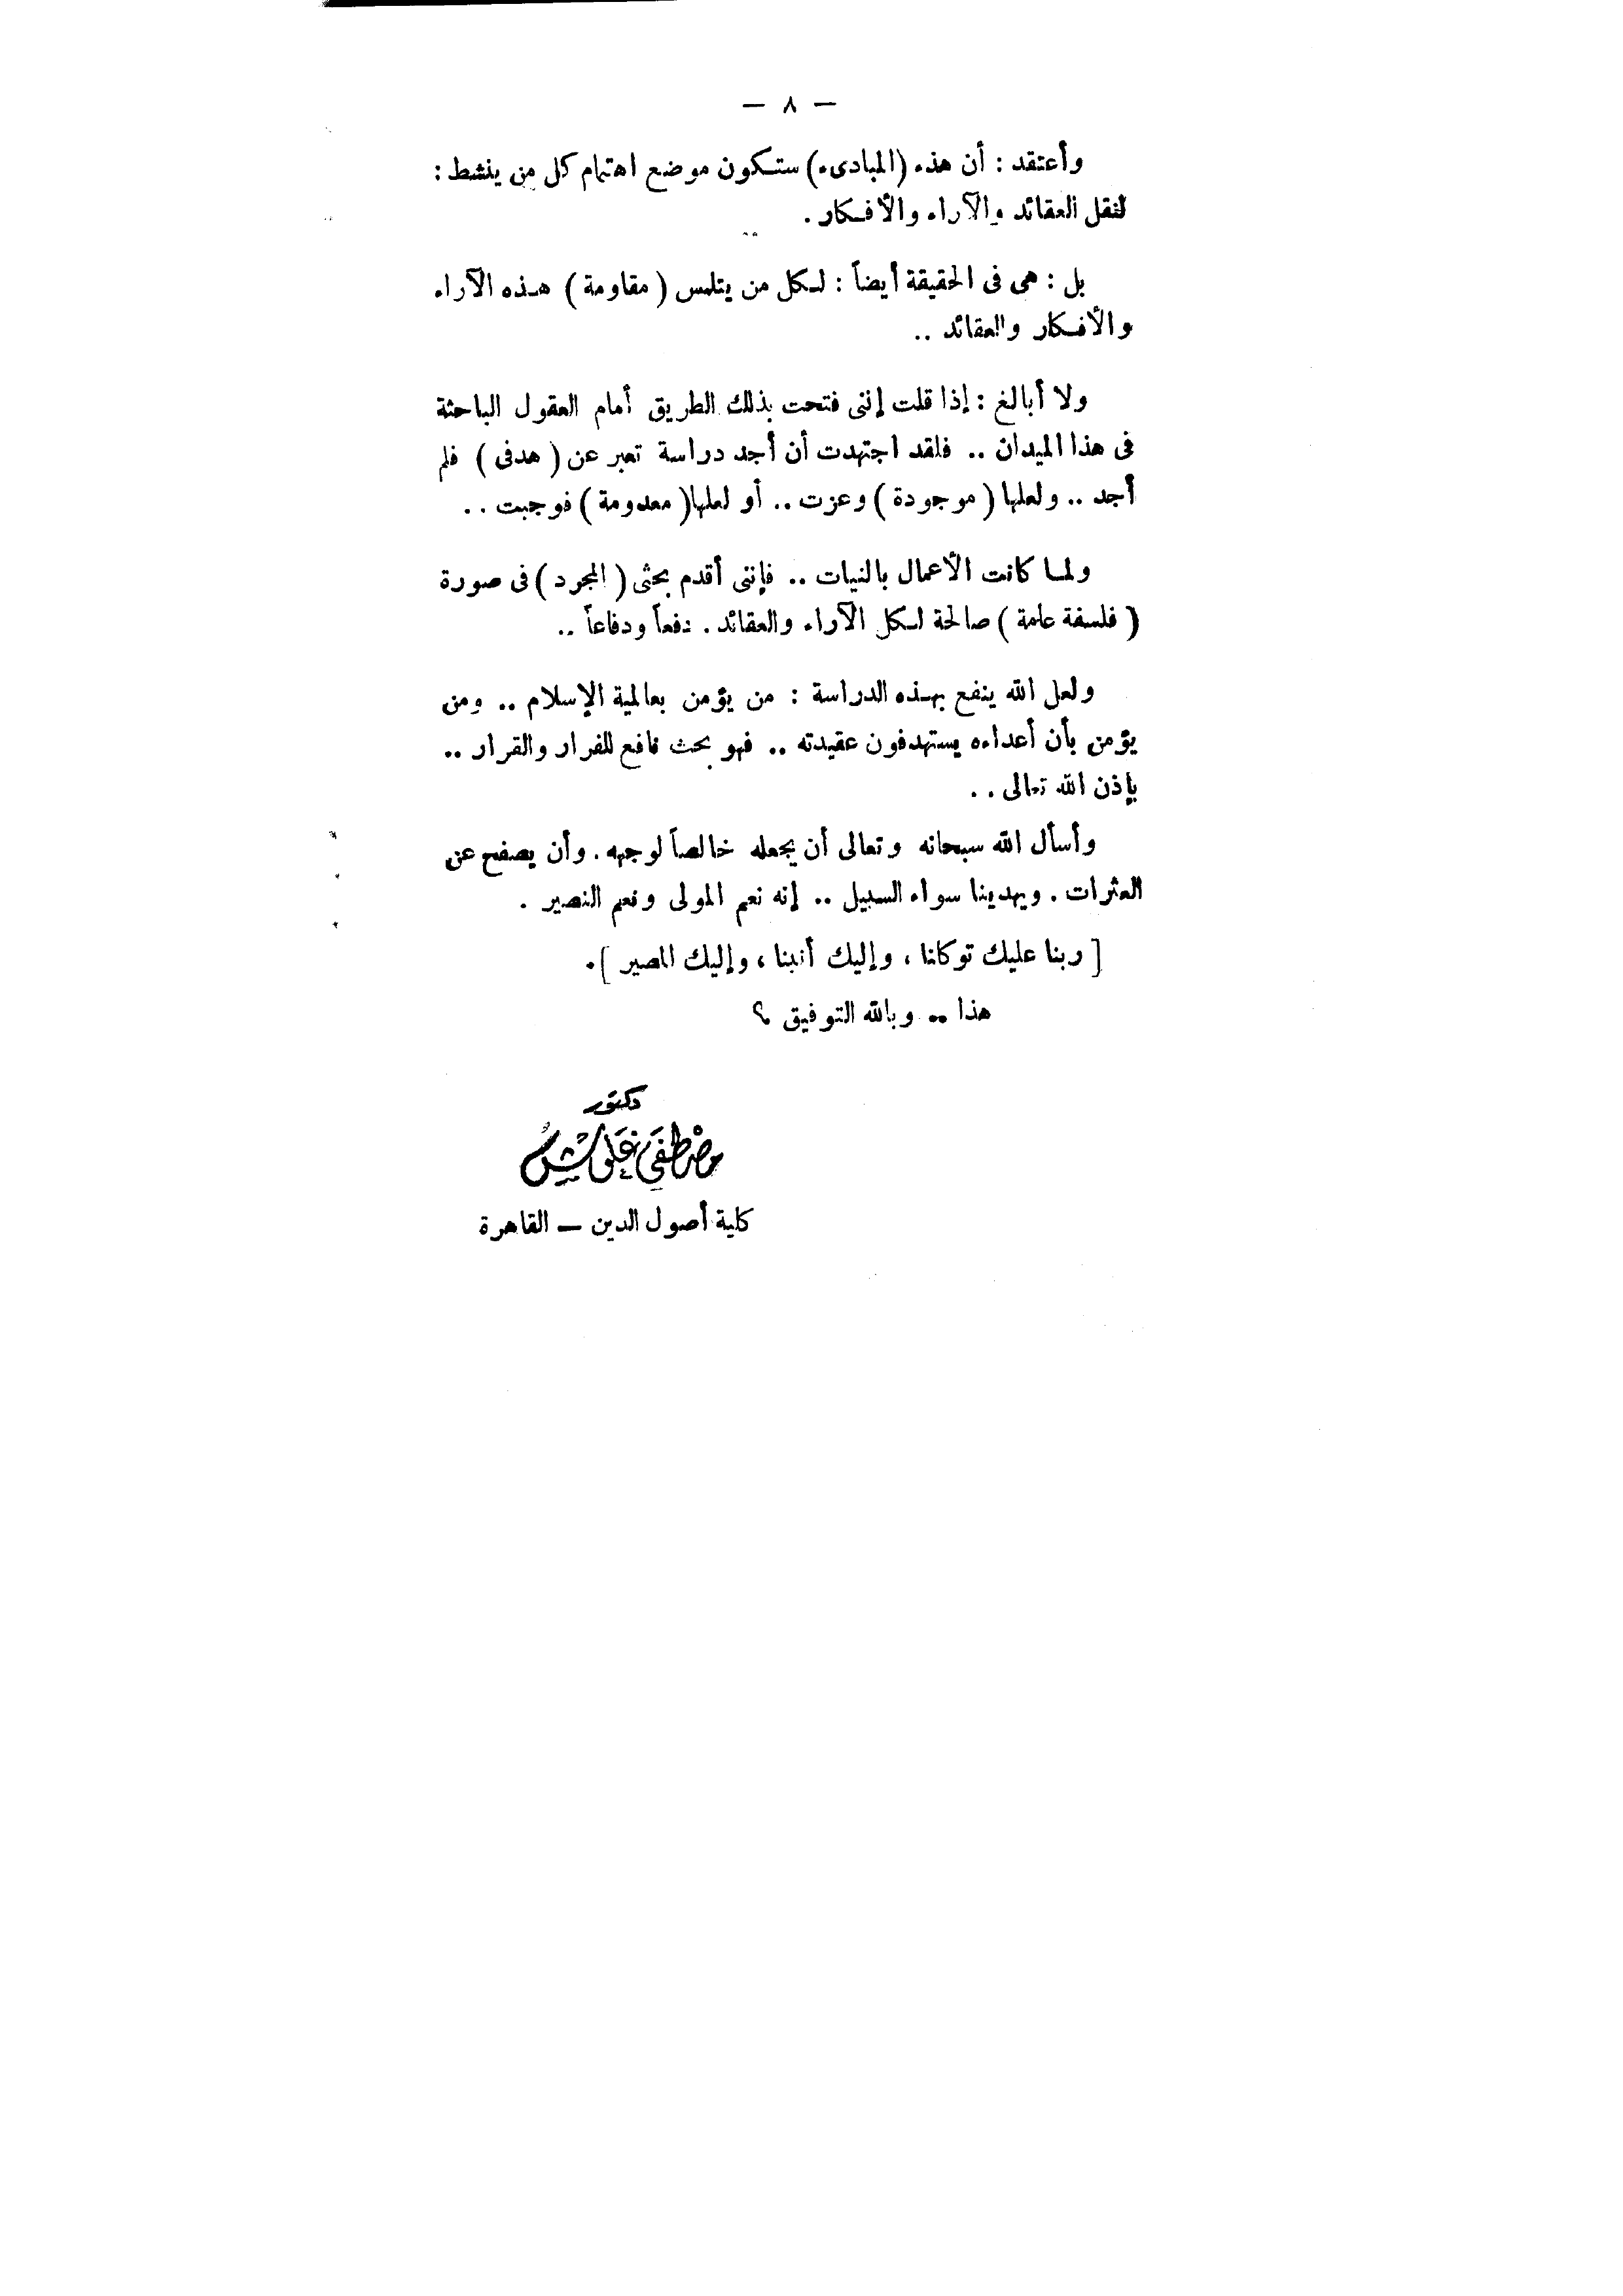 — ٨ —
وأعتقد : أن هذه (المبادىء) ستكون موضع اهتمام كل من ينشط :
لنقل العقائد والآراء والأفكار .
بل : هى فى الحقيقة أيضاً : لكل من يتلمس ( مقاومة ) هذه الآراء
والأفكار والعقائد ..
ولا أبالغ : إذا قلت إننى فتحت بذلك الطريق أمام العقول الباحثة
فى هذا الميدان .. فلقد اجتهدت أن أجد دراسة تعبر عن ( هدفى ) فلم
أجد .. ولعلها ( موجودة ) وعزت .. أو لعلها ( معدومة ) فوجبت ..
ولما كانت الأعمال بالنيات .. فإننى أقدم بحثى ( المجرد ) فى صورة
( فلسفة عامة ) صالحة لكل الآراء والعقائد . دفعاً ودفاعاً ..
ولعل الله ينفع بهذه الدراسة : من يؤمن بعالمية الإسلام .. ومن
يؤمن بأن أعداءه يستهدفون عقيدته .. فهو بحث نافع للفرار والقرار ..
بإذن الله تعالى ..
وأسأل الله سبحانه وتعالى أن يجعله خالصاً لوجهه . وأن يصفح عن
العثرات . ويهدينا سواء السبيل .. إنه نعم المولى ونعم النصير .
[ ربنا عليك توكلنا ، وإليك أنبنا ، وإليك المصير ] .
هذا .. وبالله التوفيق ؟
دكتور
مصطفى غلوش
كلية أصول الدين — القاهرة